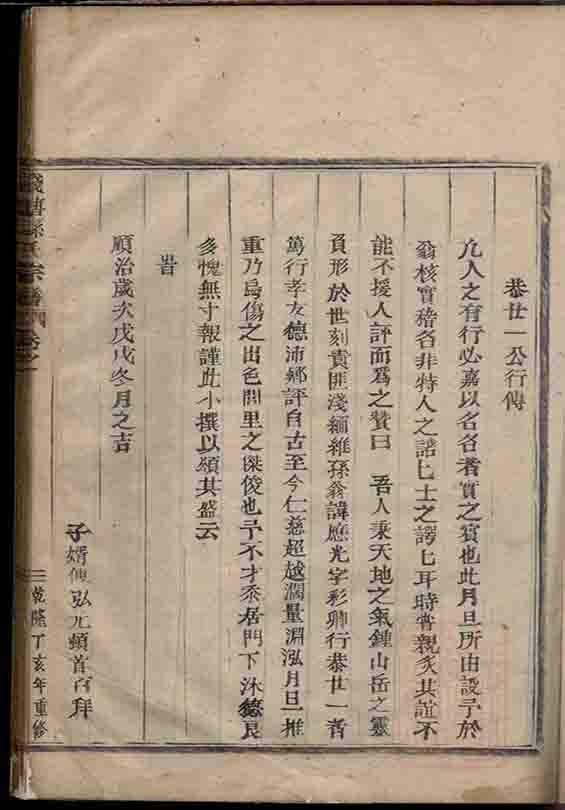 恭廿一公行傳
凢人之有行必嘉以名名者實之賓也此月旦所由設予於
翁核實稽名非特人之諾匕士之諤匕耳時嘗親炙其誼不
能不援人評而爲之贊曰 吾人秉天地之氣鍾山岳之靈
負形於世刻責匪淺緬維孫翁諱應光字彩卿行恭廿一者
篤行孝友德沛鄉評自古至今仁慈超越濶量淵泓月旦一推
重乃烏傷之出色閭里之傑俊也予不才忝居門下沐德良
多愧無寸報謹此小撰以頌其盛云
旹
順治歲次戊戌冬月之吉
子婿 弘 頓首百拜
孫氏宗譜 卷之一
乾隆丁亥年重修